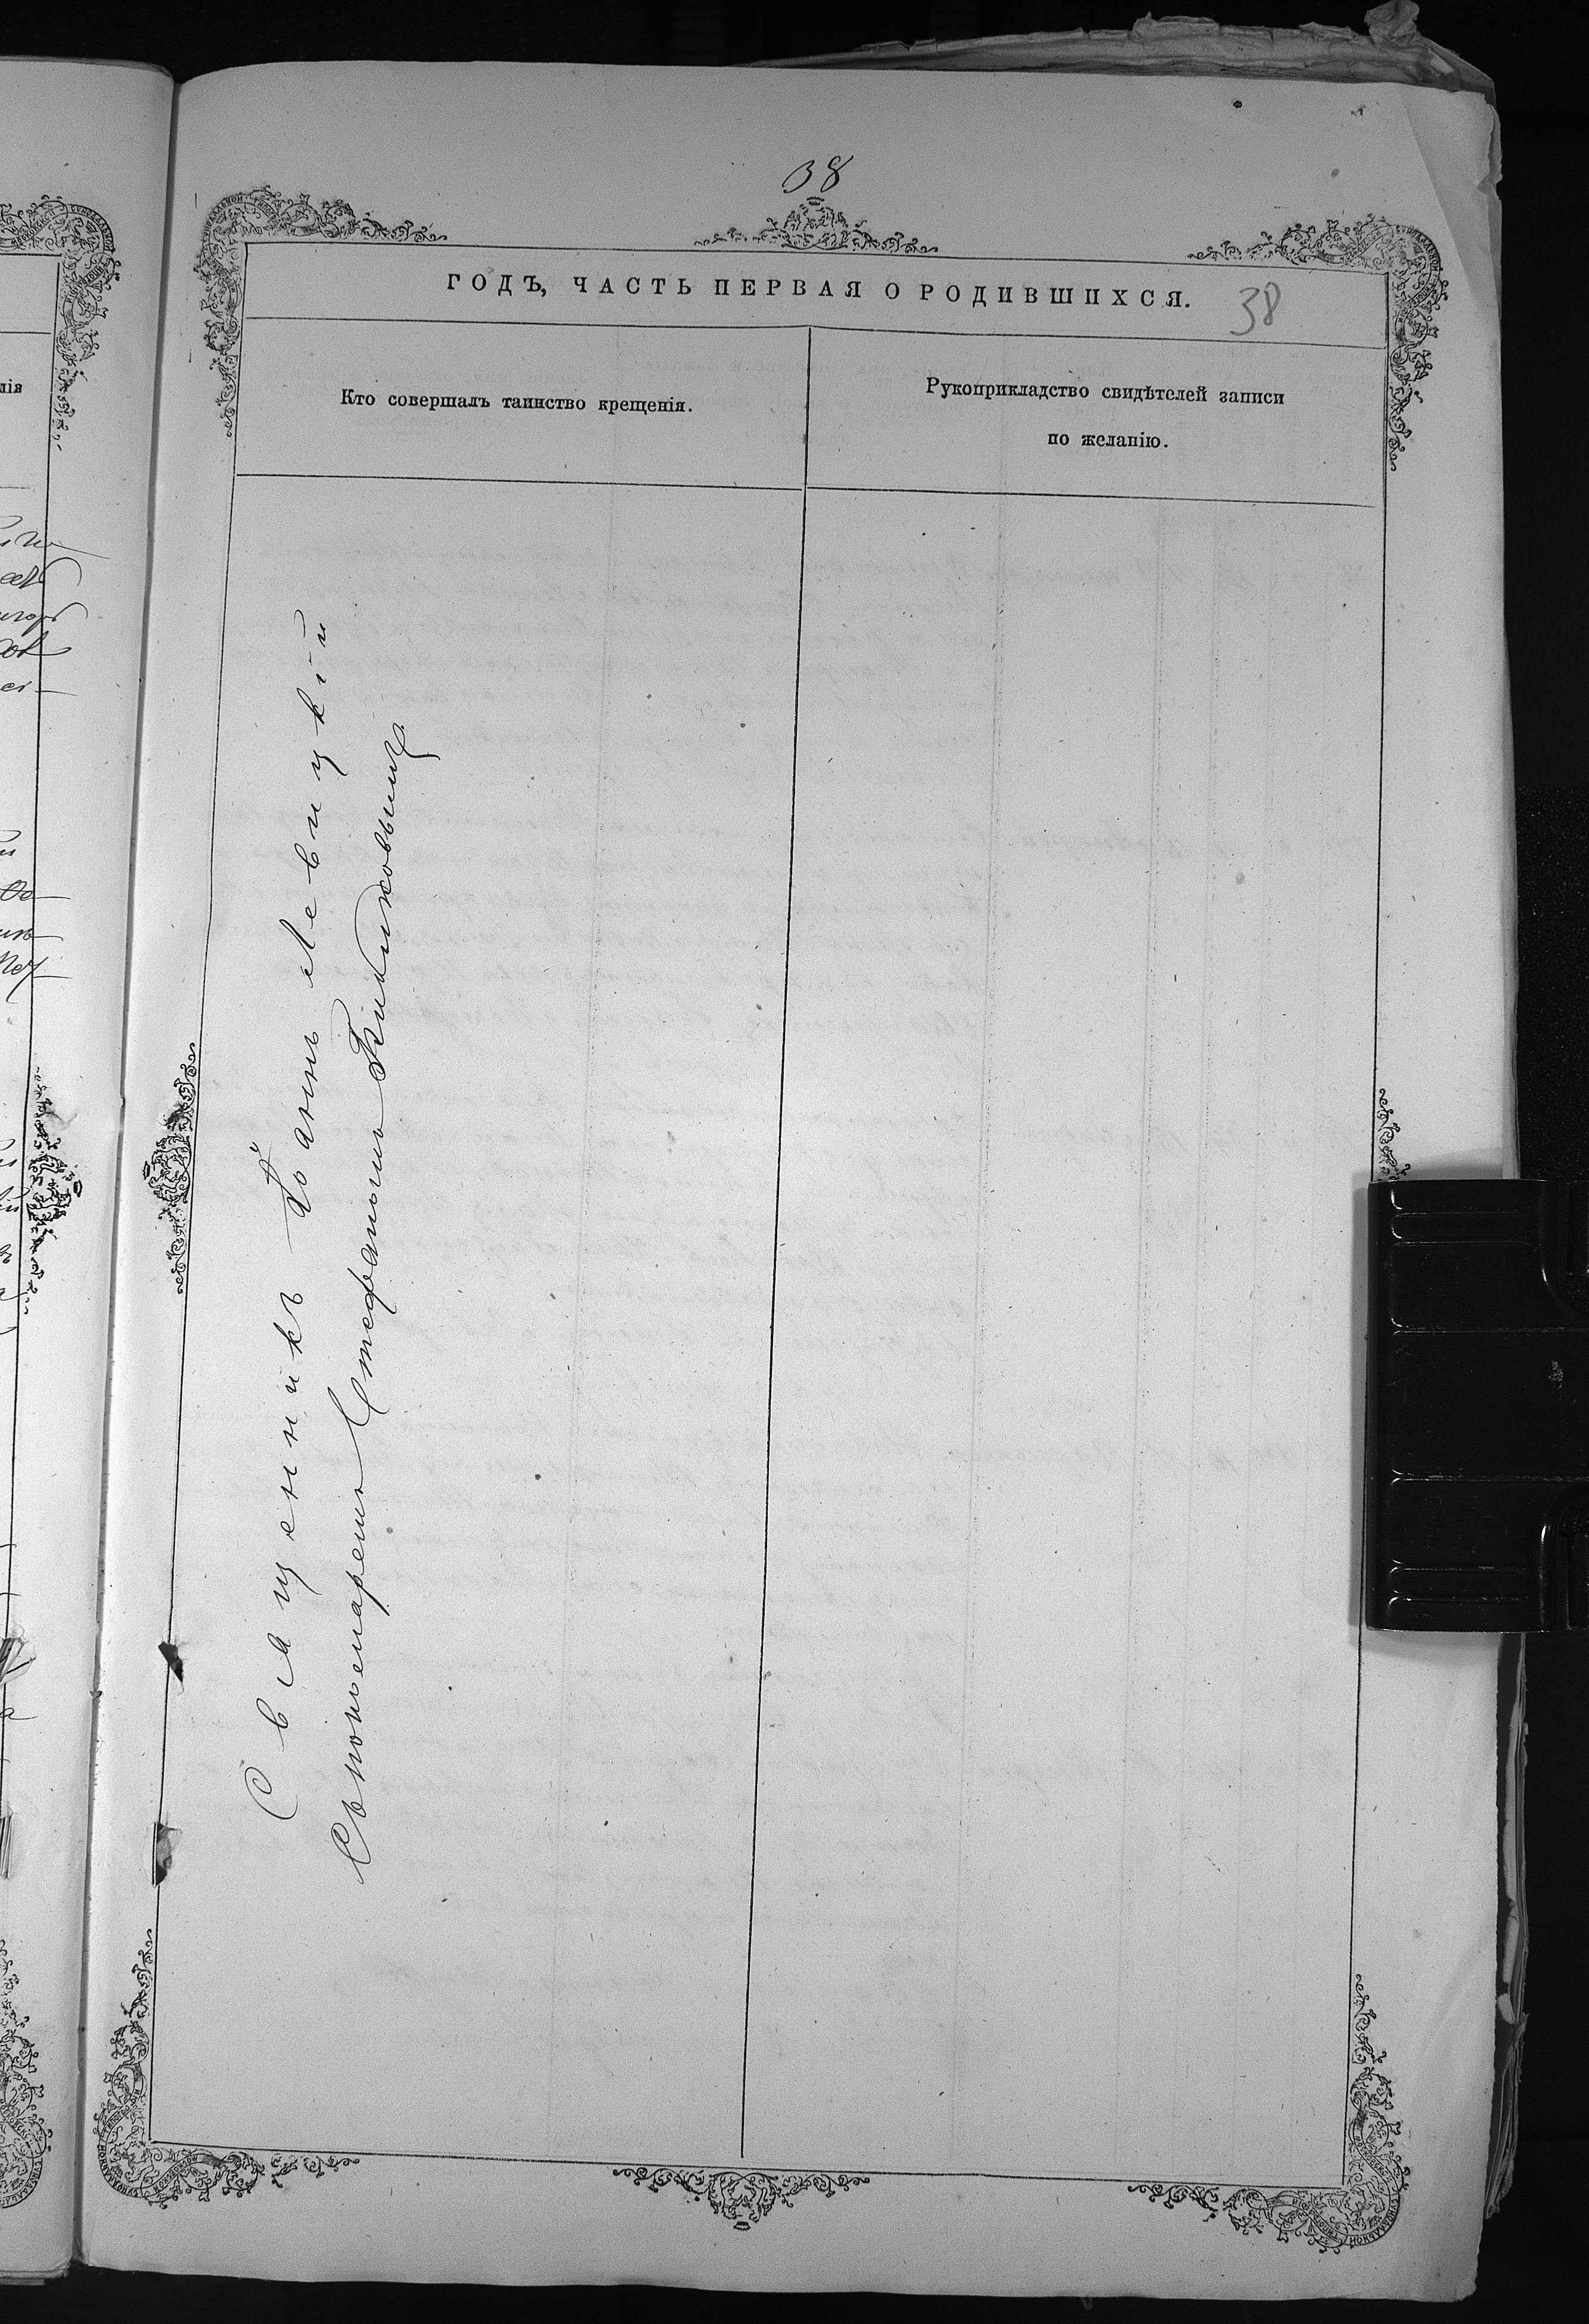 38
ГОДЪ, ЧАСТЬ ПЕРВАЯ О РОДИВШИХСЯ.
38
Кто совершалъ таинство крещенія.
Рукоприкладство свидѣтелей записи
по желанію.
Священникъ Іоаннъ Левицкій
Съ пономаремъ Стефаномъ